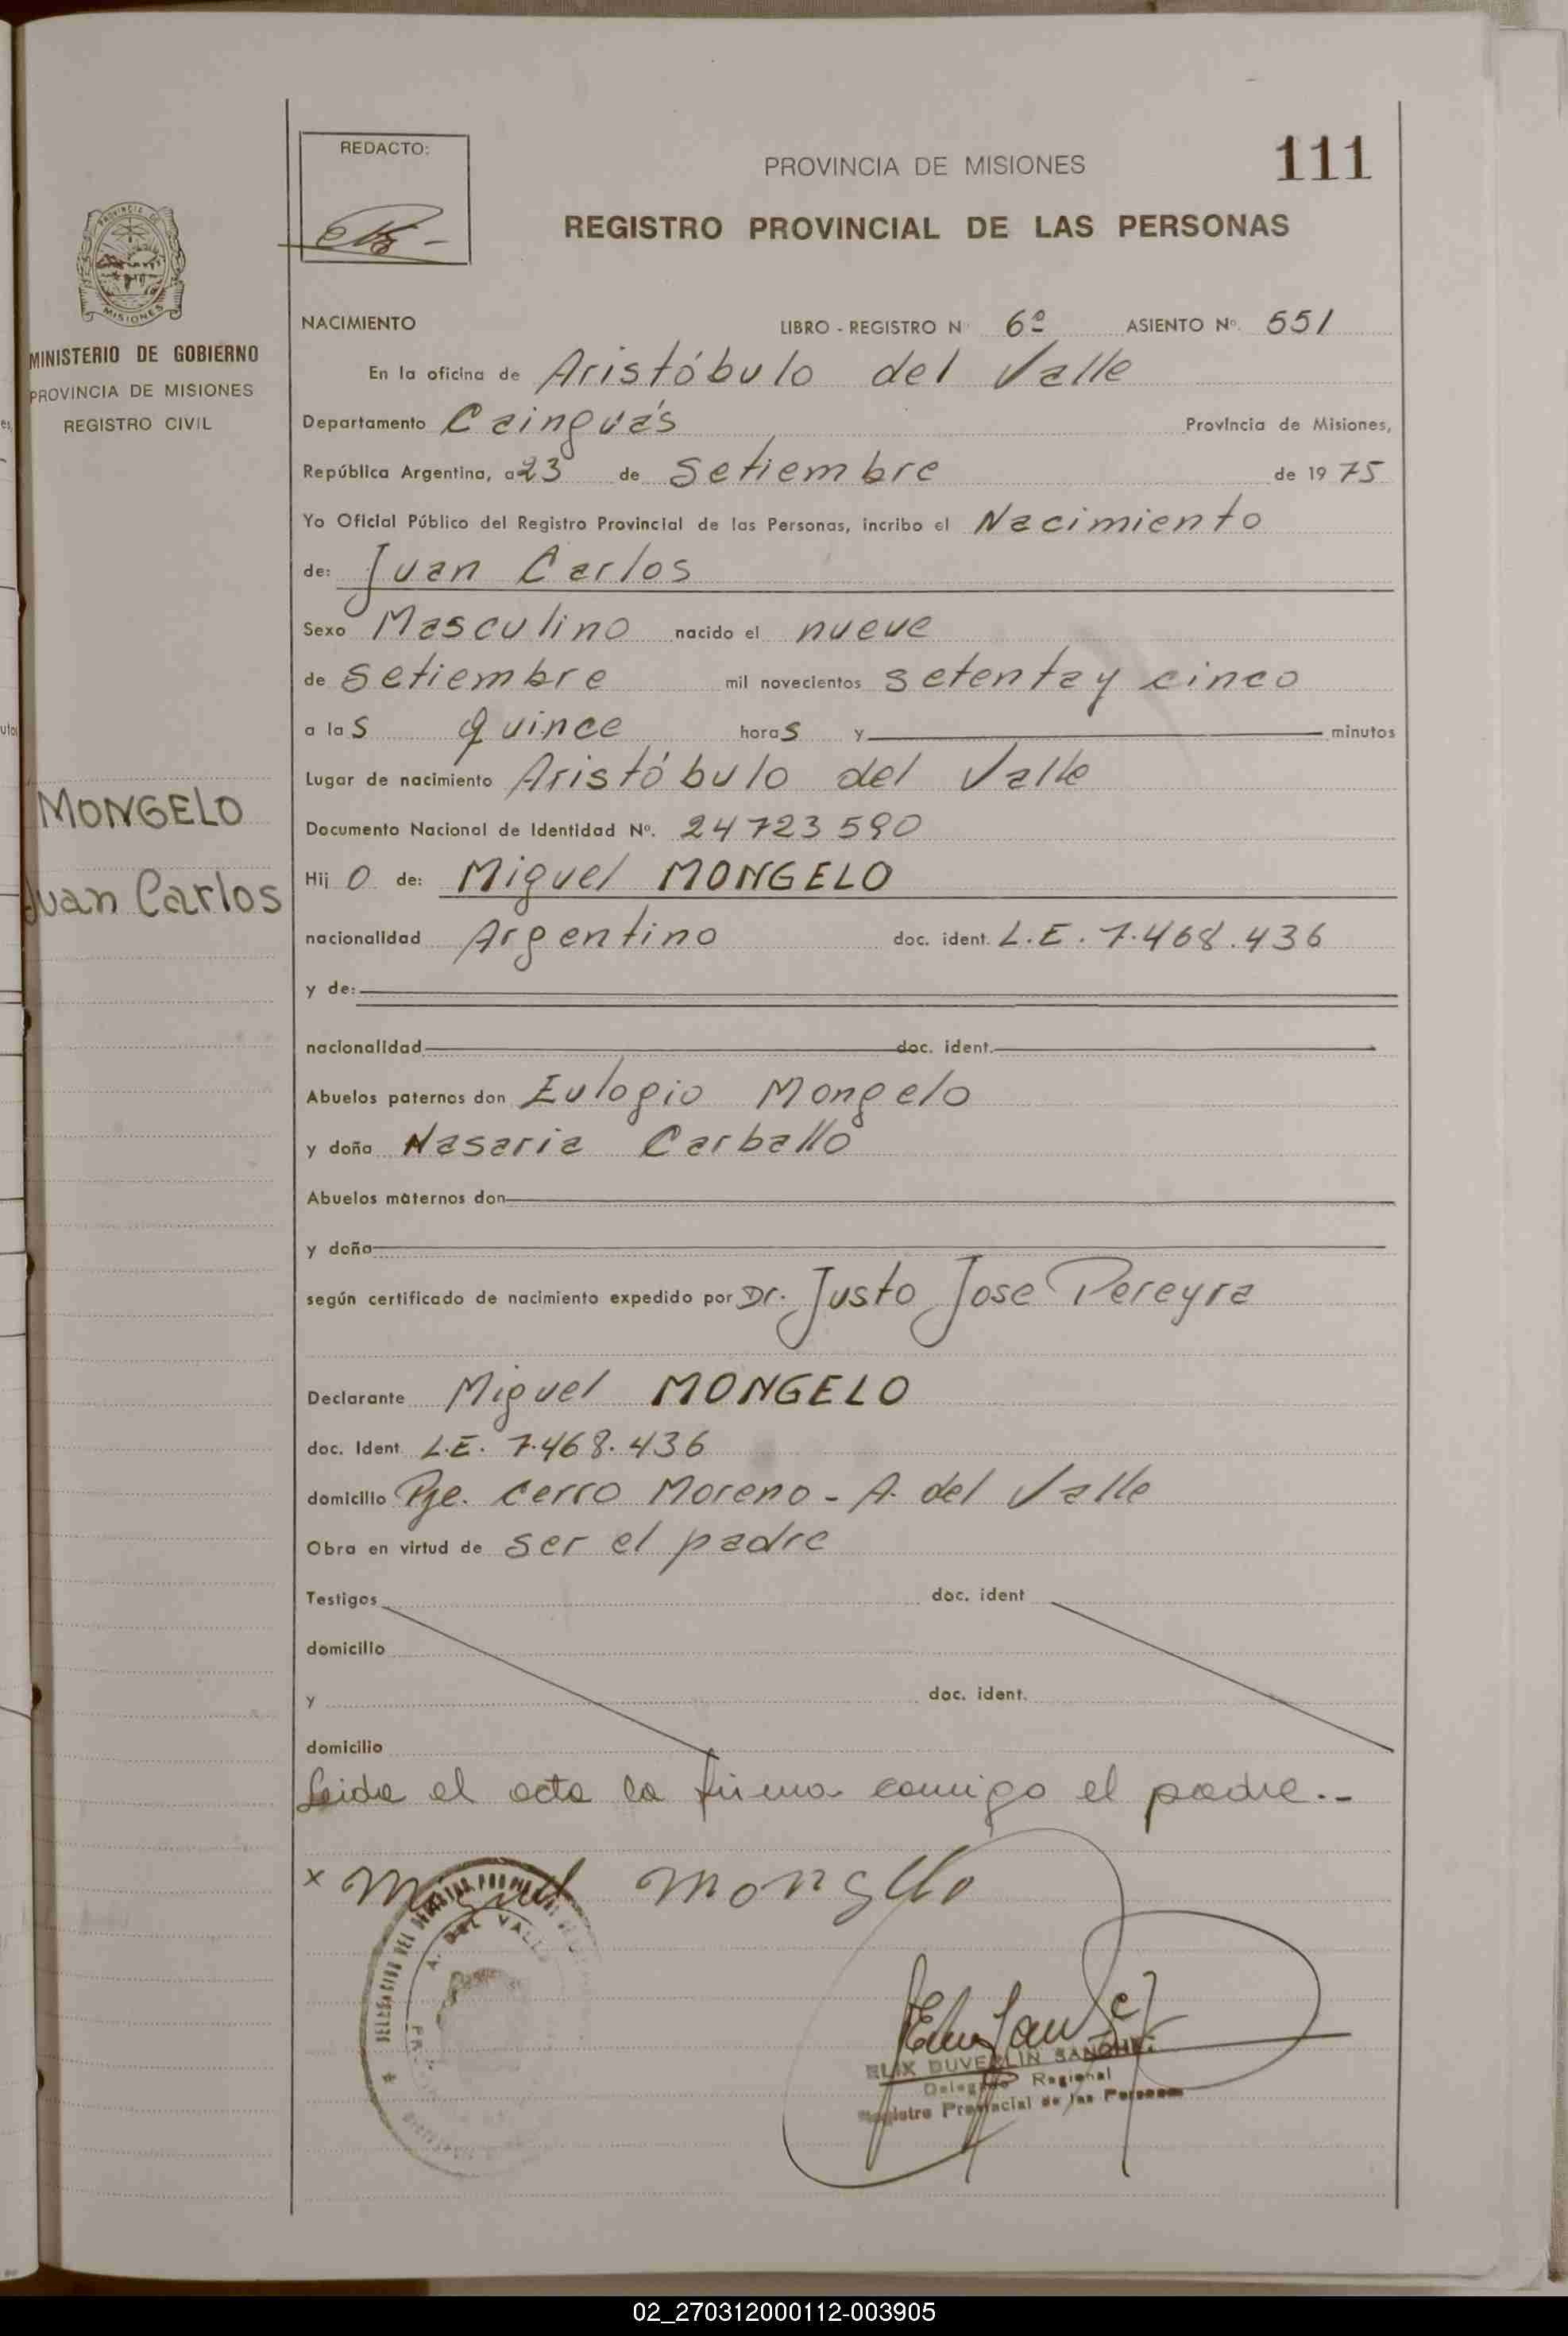 REDACTO:
PROVINCIA DE MISIONES
111
REGISTRO PROVINCIAL DE LAS PERSONAS
PROVINCIA DE
MISIONES
MINISTERIO DE GOBIERNO
PROVINCIA DE MISIONES
REGISTRO CIVIL
MONGELO
Juan Carlos
NACIMIENTO LIBRO - REGISTRO Nº 6º ASIENTO Nº. 551
En la oficina de Aristóbulo del Valle
Departamento Cainguás Provincia de Misiones,
República Argentina, a 23 de Setiembre de 1975
Yo Oficial Público del Registro Provincial de las Personas, incribo el Nacimiento
de: Juan Carlos
Sexo Masculino nacido el nueve
de Setiembre mil novecientos setenta y cinco
a las quince horas y minutos
Lugar de nacimiento Aristóbulo del Valle
Documento Nacional de Identidad Nº. 24723590
Hijo de: Miguel MONGELO
nacionalidad Argentino doc. ident. L.E. 7.468.436
y de:
nacionalidad doc. ident.
Abuelos paternos don Eulogio Mongelo
y doña Nasaria Carballo
Abuelos maternos don
y doña
según certificado de nacimiento expedido por Dr. Justo Jose Pereyra
Declarante Miguel MONGELO
doc. Ident. L.E. 7.468.436
domicilio Pje. Cerro Moreno - A. del Valle
Obra en virtud de ser el padre
Testigos doc. ident
domicilio
y doc. ident.
domicilio
Leida el acta la firma comigo el padre.-
x Miguel Mongelo
A. DEL VALLE
ELIX DUVERLIN SANCHEZ
Delegado Regional
Registro Provincial de las Personas
02_270312000112-003905